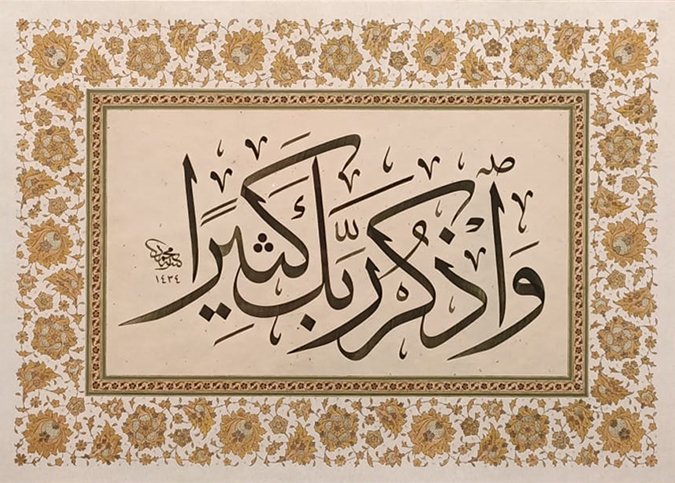 وَٱذْكُرْ رَبَّكَ كَثِيرًا
١٤٣٤